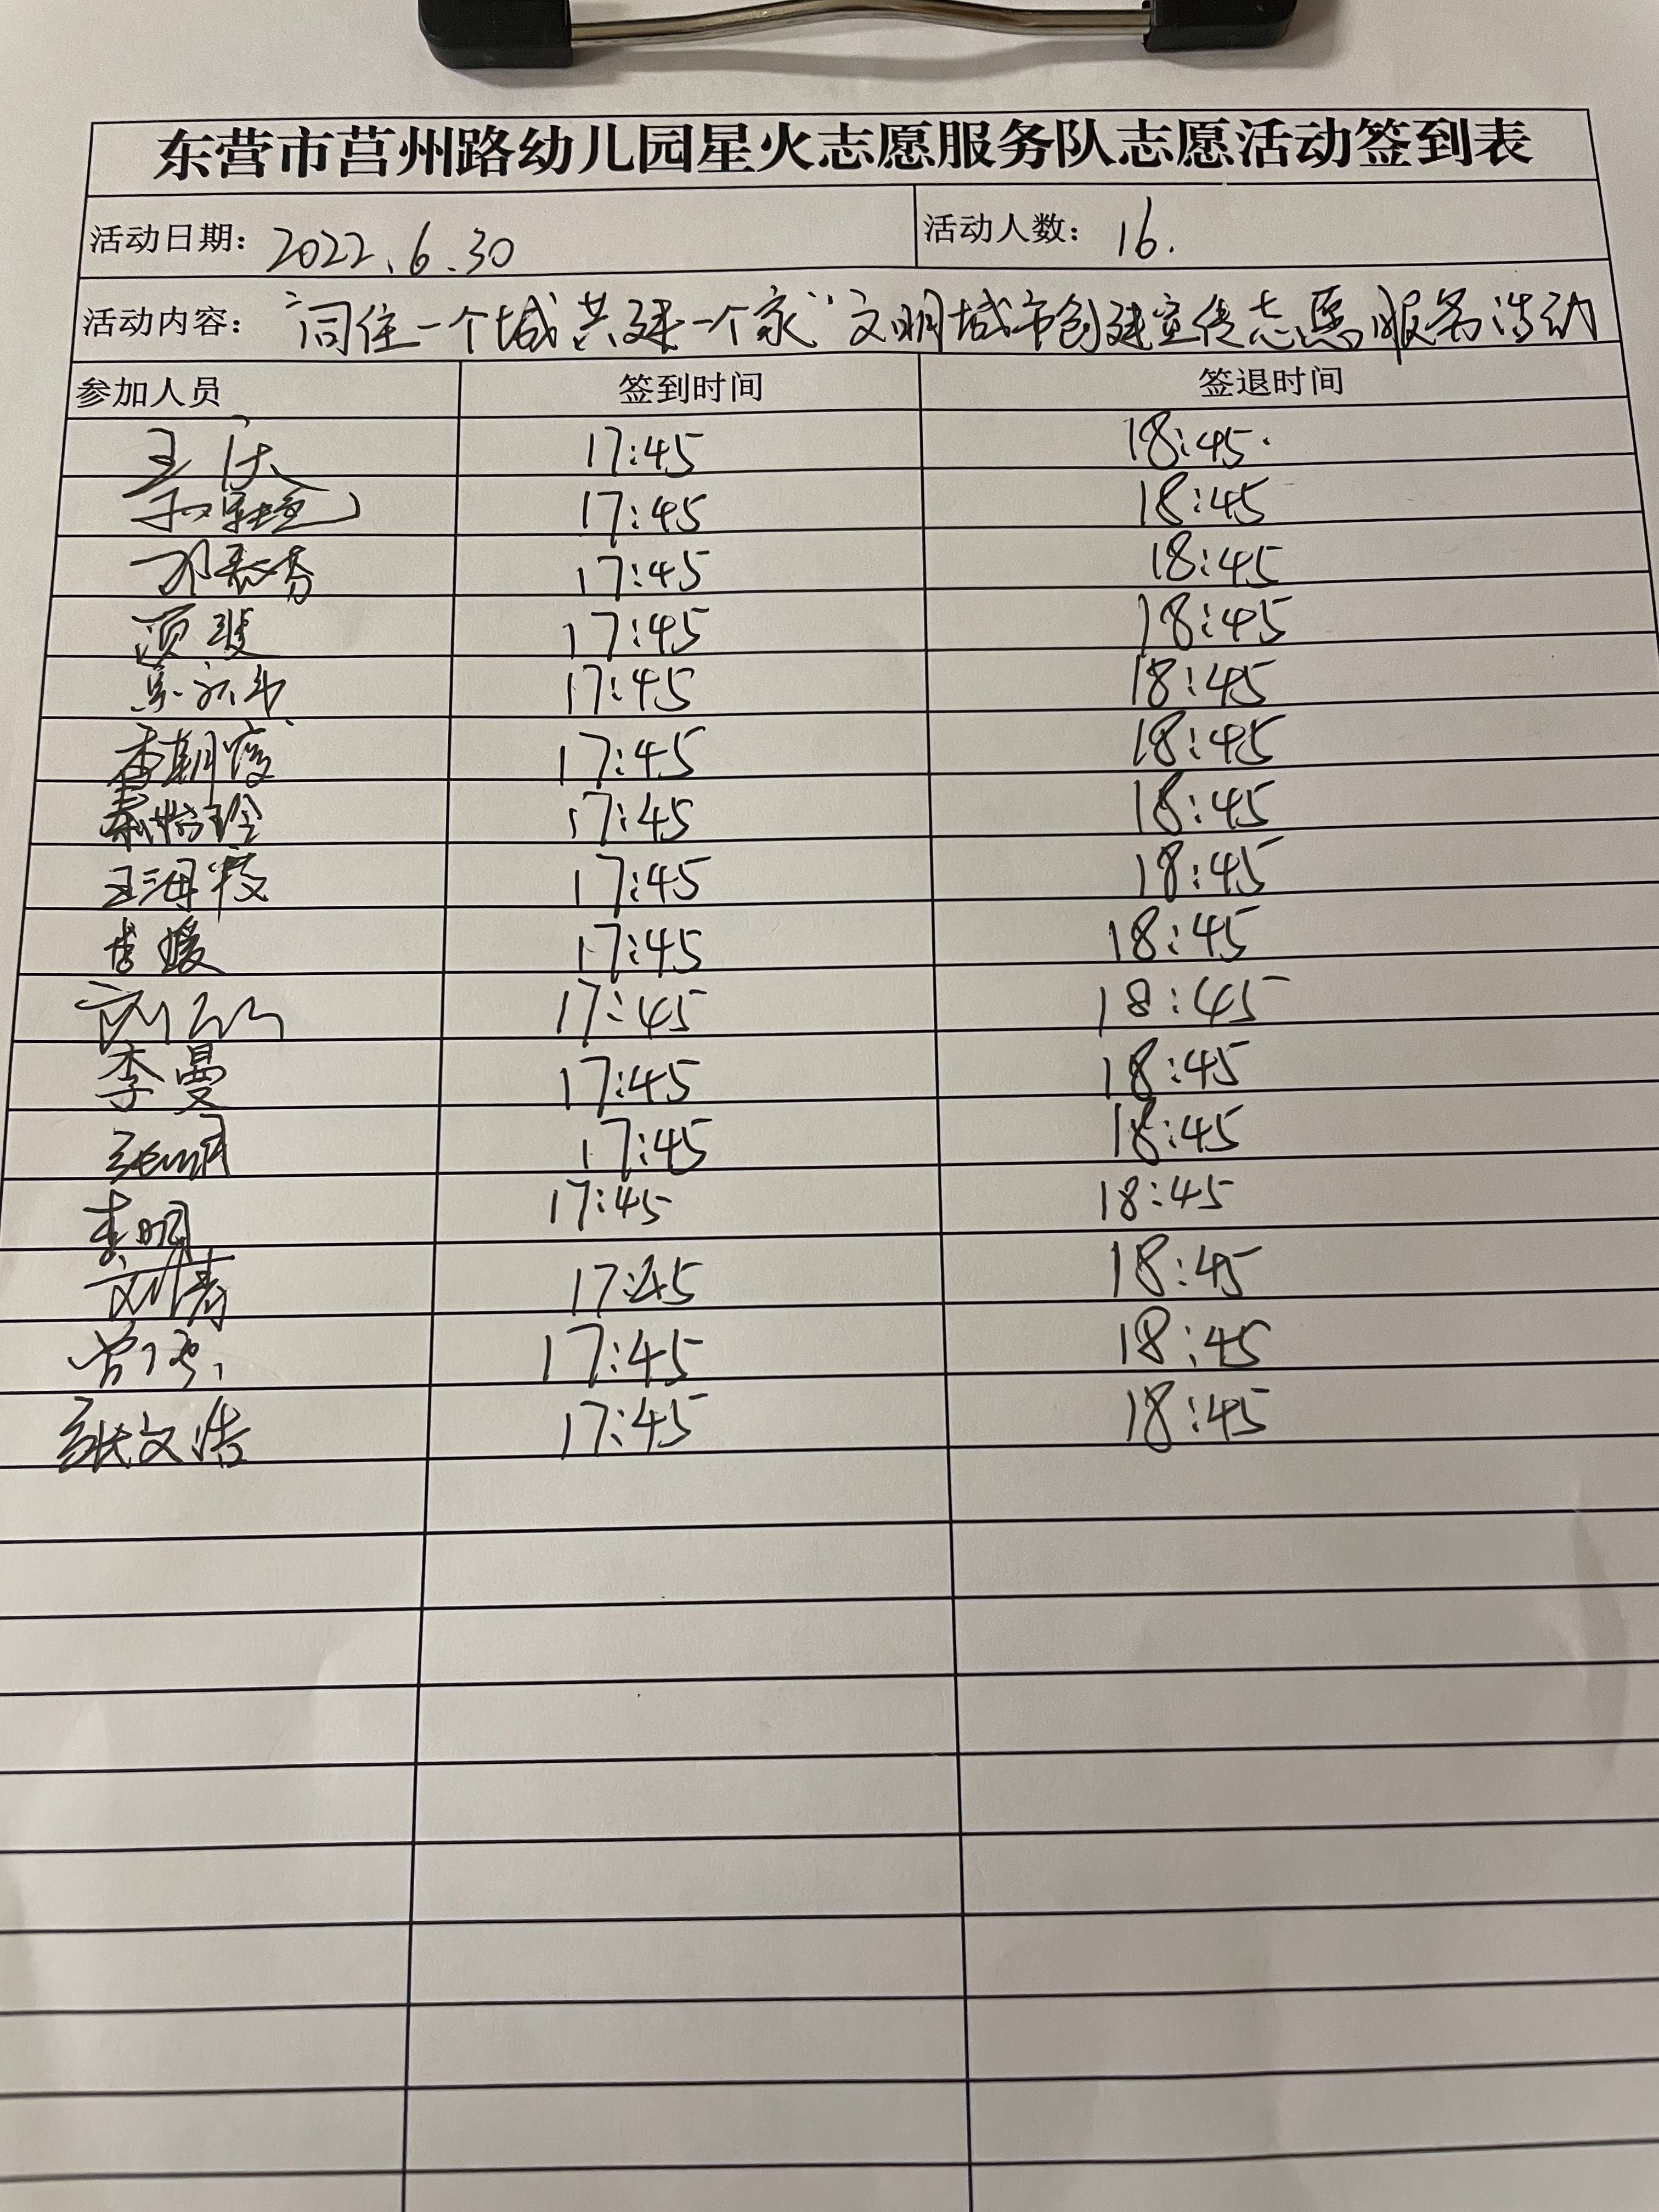 东营市莒州路幼儿园星火志愿服务队志愿活动签到表
活动日期： 2022.6.30 活动人数： 16.
活动内容： “同住一个城 共建一个家”文明城市创建宣传志愿服务活动
参加人员 签到时间 签退时间
17:45 18:45
17:45 18:45
17:45 18:45
17:45 18:45
17:45 18:45
李朝霞 17:45 18:45
17:45 18:45
王海霞 17:45 18:45
李媛 17:45 18:45
17:45 18:45
李曼 17:45 18:45
张明 17:45 18:45
李明 17:45 18:45
刘青 17:45 18:45
17:45 18:45
张文浩 17:45 18:45